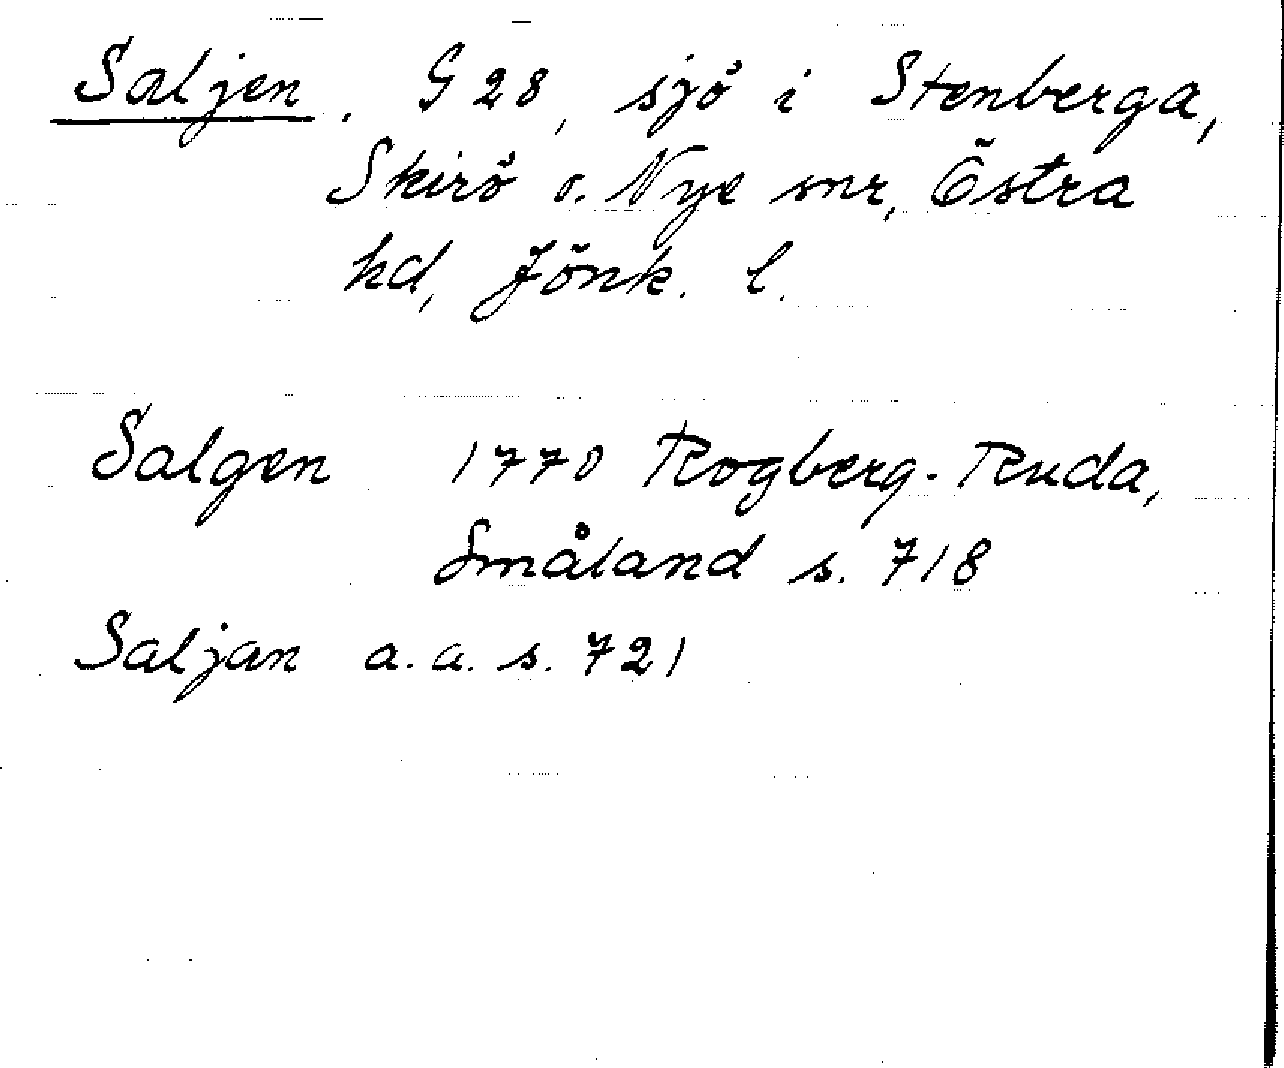 Saljen. G 28, sjö i Stenberga,
Skirö o. Nye snr, Östra
hd, Jönk. l.
Salgen 1770 Rogberg-Ruda,
Småland s. 718
Saljan a.a. s. 721